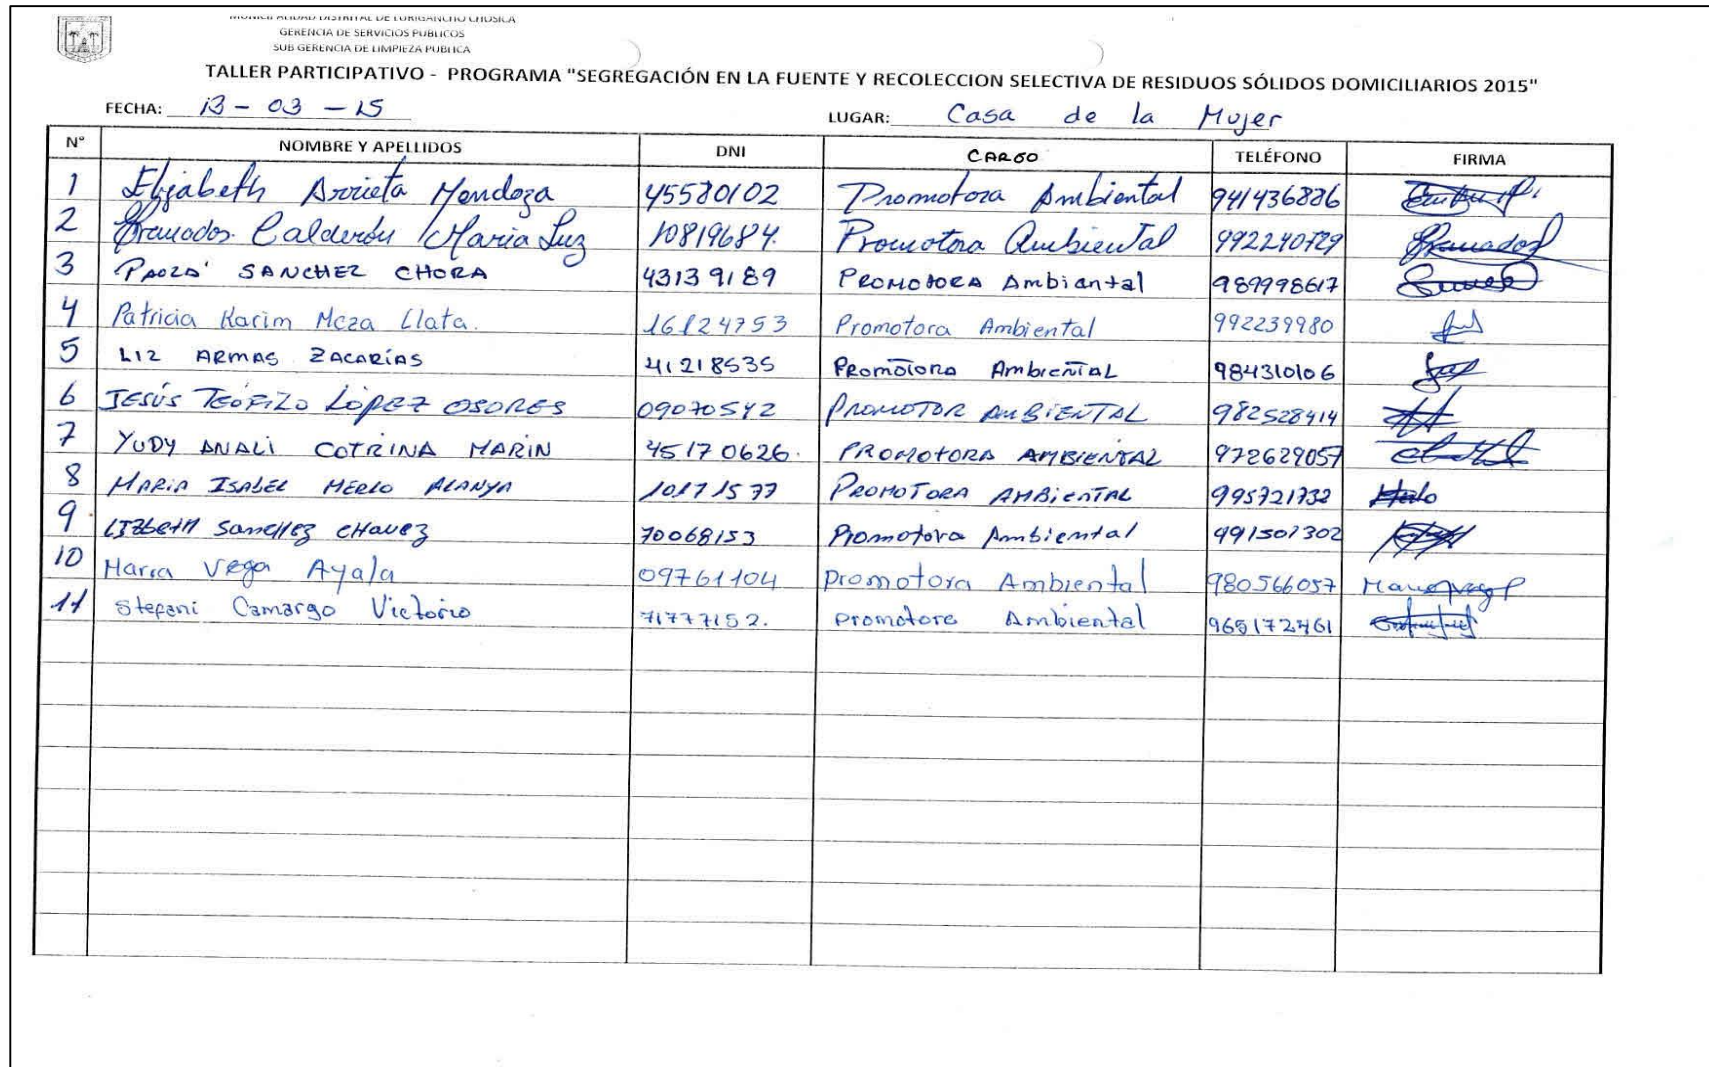 MUNICIPALIDAD DISTRITAL DE LURIGANCHO CHOSICA
GERENCIA DE SERVICIOS PUBLICOS
SUB GERENCIA DE LIMPIEZA PUBLICA
TALLER PARTICIPATIVO - PROGRAMA "SEGREGACIÓN EN LA FUENTE Y RECOLECCION SELECTIVA DE RESIDUOS SÓLIDOS DOMICILIARIOS 2015"
FECHA: 13 - 03 - 15 LUGAR: Casa de la Mujer
N° NOMBRE Y APELLIDOS DNI CARGO TELÉFONO FIRMA
1 Elizabeth Arrieta Mendoza 45580102 Promotora Ambiental 941436836
2 Granados Calderón Maria Luz 10819684. Promotora Ambiental 992240729 Granados
3 PAOLA SANCHEZ CHORA 43139189 PROMOTORA Ambiantal 989998617
4 Patricia Karim Meza Llata. 16124753 Promotora Ambiental 992239980
5 LIZ ARMAS ZACARÍAS 41218535 PROMOTORA AmbieNTAL 984310106
6 JESÚS TEÓFILO LÓPEZ OSORES 09070542 PROMOTOR AMBIENTAL 982528414
7 YUDY ANALI COTRINA MARIN 45170626. PROMOTORA AMBIENTAL 972629057
8 MARIA ISABEL MERLO ALANYA 10171577 PROMOTORA AMBIENTAL 995721732 Merlo
9. LIZBETH SANCHEZ CHAVEZ 70068153 Promotora Ambiental 991501302
10 Maria Vega Ayala 09761104 promotora Ambiental 980566057
11 Stefani Camargo Victorio 71777152. promotora Ambiental 965172761